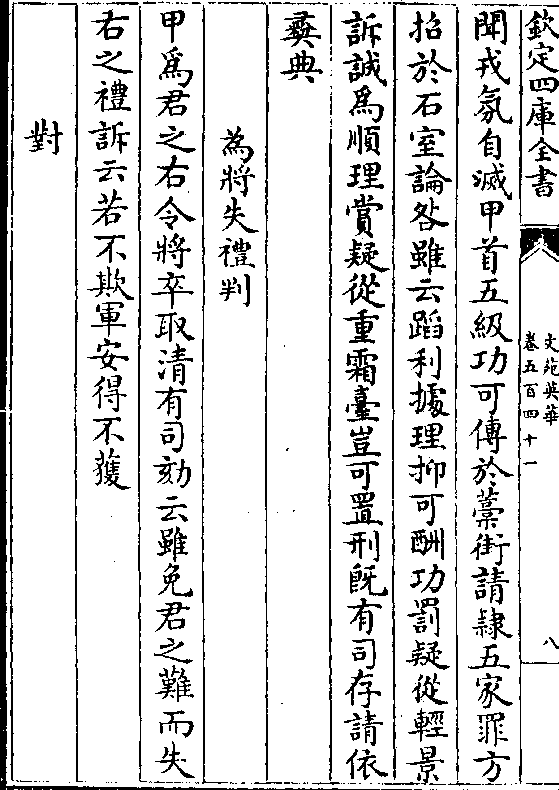 欽定四庫全書
文苑英華
卷五百四十一
八
聞戎氛自滅甲首五級功可傳於藁街請隸五家罪方
招於石室論咎雖云蹈利據理抑可酬功罰疑從輕景
訴誠為順理賞疑從重霜臺豈可置刑既有司存請依
彛典
為將失禮判
甲爲君之右令將卒取清有司劾云雖免君之難而失
右之禮訴云若不欺軍安得不獲
對